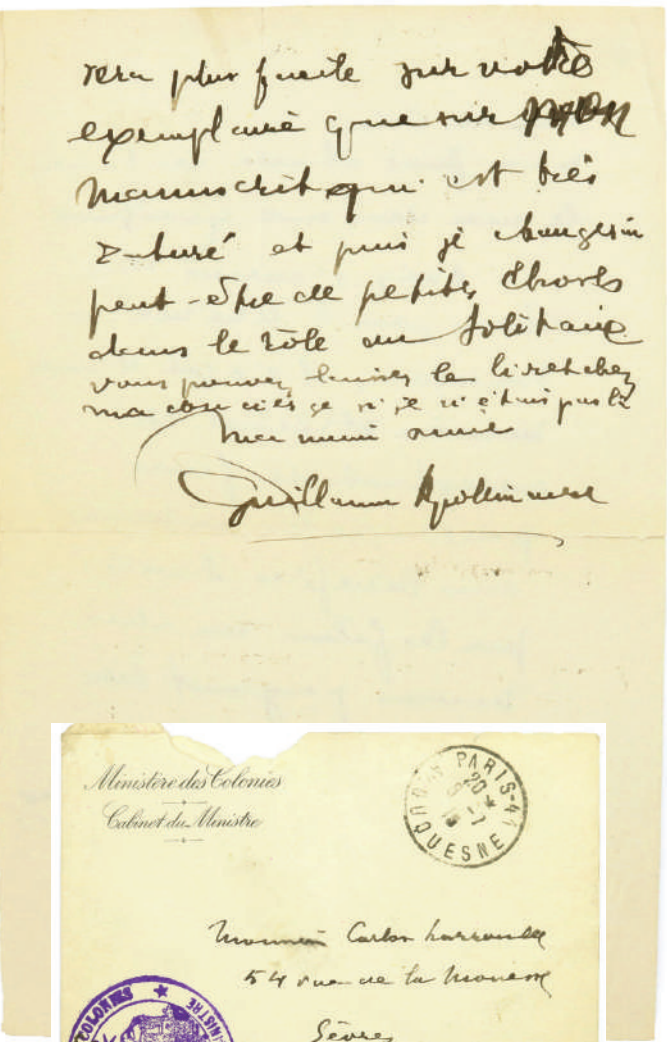 sera plus facile sur votre
exemplaire que sur mon
manuscrit qui est très
raturé et puis je changerai
peut-être de petites choses
dans le rôle du solitaire
vous pouvez laisser le livret chez
ma concierge si je n'étais pas là
Ma main amie
Guillaume Apollinaire
Ministère des Colonies
Cabinet du Ministre
PARIS-41
20
DUQUESNE
Monsieur Carlos Larronde
54 rue de la
Sèvres
COLONIES
MINISTRE